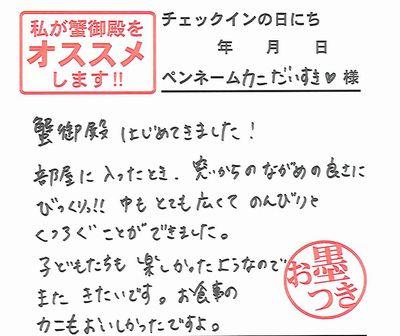 私が蟹御殿を
オススメ
します!!
チェックインの日にち
年 月 日
ペンネーム カニだいすき♥ 様
蟹御殿 はじめてきました!
部屋に入ったとき、窓からのながめの良さに
びっくりっ!! 中もとても広くてのんびりと
くつろぐことができました。
子どもたちも楽しかったようなので
またきたいです。お食事の
カニもおいしかったですよ。
お墨つき